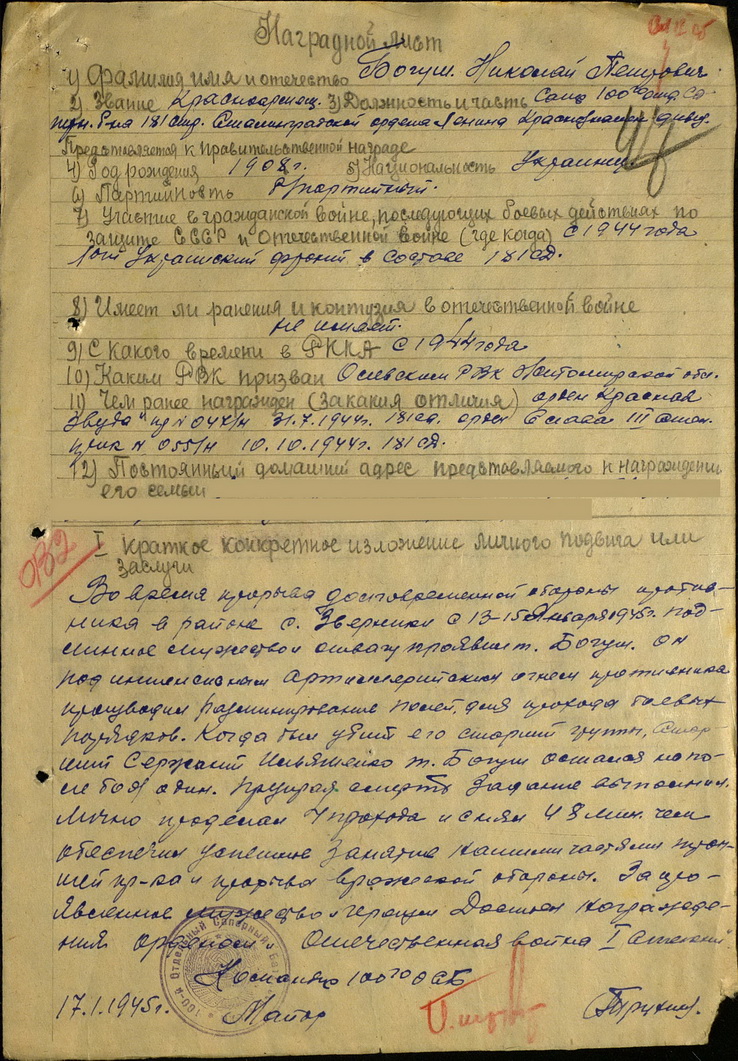 Наградной лист
1) Фамилия имя и отечество Богуш. Николай Петрович
2) Звание Красноармеец. 3) Должность и часть Сапер 100го отд. са-
перн. б-на 181 стр. Сталинградской ордена Ленина Краснознамен. дивиз.
Представляется к правительственной награде
4) Год рождения 1908 г. 5) Национальность Украинец
6) Партийность б/партийный.
7) Участие в гражданской войне, последующих боевых действиях по
защите СССР и Отечественной войне (где когда) с 1944 года
1ый Украинский фронт в составе 181 сд.
8) Имеет ли ранения и контузия в отечественной войне
не имеет.
9) С какого времени в РККА с 1944 года
10) Каким РВК призван РВК Житомирской обл.
11) Чем ранее награжден (за какия отличия) орден Красная
Звезда" пр № 31.7.1944г. 181 сд. орден Слава III степ.
приказ № 055/н 10.10.1944г. 181 сд.
12) Постоянный домашний адрес представляемого к награждению
его семьи
I Краткое конкретное изложение личного подвига или
заслуги
Во время прорыва долговременной обороны против-
ника в районе с. Зверники с 13-15 Января 1945г. под-
линное мужество и отвагу проявил т. Богуш. он
под интенсивным артиллерийским огнем противника
производил разминирование полей, для прохода боевых
порядков. Когда был убит его старший группы, стар-
ший Сержант Ильяшенко т. Богуш остался на по-
ле боя один. Презирая смерть задание выполнил.
Лично проделал 4 прохода и снял 48 мин. чем
обеспечил успешное занятие нашими частями тран-
шей пр-ка и прорыва вражеской обороны. За про-
явленное мужество и героизм Достоен награжде-
ния орденом Отечественная война I степени
Командир 100го ОСБ
17.1.1945г. Майор
100-й Отдельный Саперный Бат